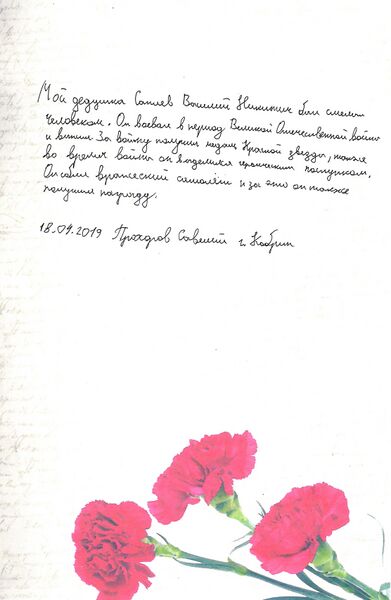 Мой дедушка Соплев Василий Никитич был смелым
человеком. Он воевал в период Великой Отечественной войны
и выжил. За войну получил медаль Красной звезды, также
во время войны он выделился героическим поступком.
Он сбил вражеский самолёт и за это он также
получил награду.
18.09.2019 Прохоров Савелий г. Кобрин